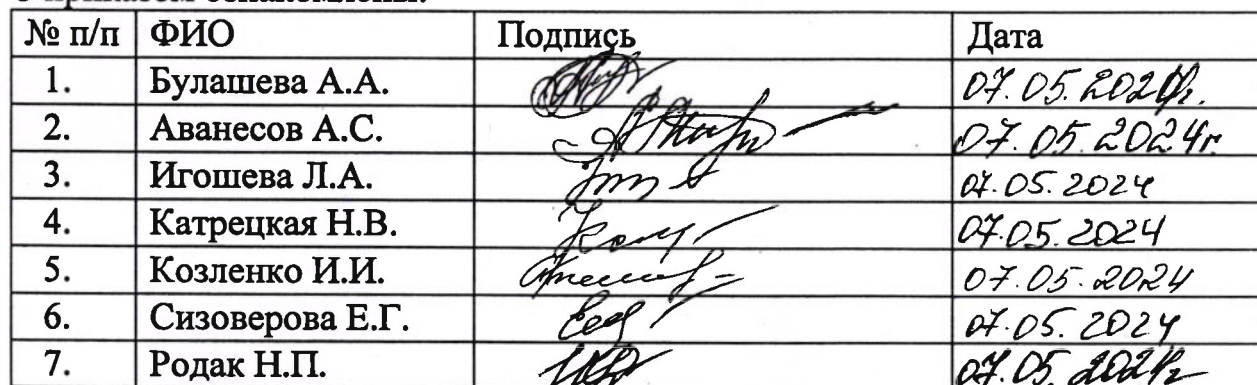 № п/п ФИО Подпись Дата
1. Булашева А.А. 07.05.2024г.
2. Аванесов А.С. 07.05.2024г
3. Игошева Л.А. 07.05.2024
4. Катрецкая Н.В. 07.05.2024
5. Козленко И.И. 07.05.2024
6. Сизоверова Е.Г. 07.05.2024
7. Родак Н.П. 07.05.2024г